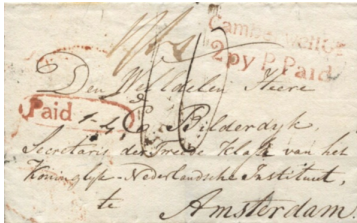 Camberwell Gr
2py P. Paid
Den WelEdelen Heere
Paid
Bilderdyk,
Secretaris der Tweede Klasse van het
Koninglyk-Nederlandsche Instituut,
te
Amsterdam